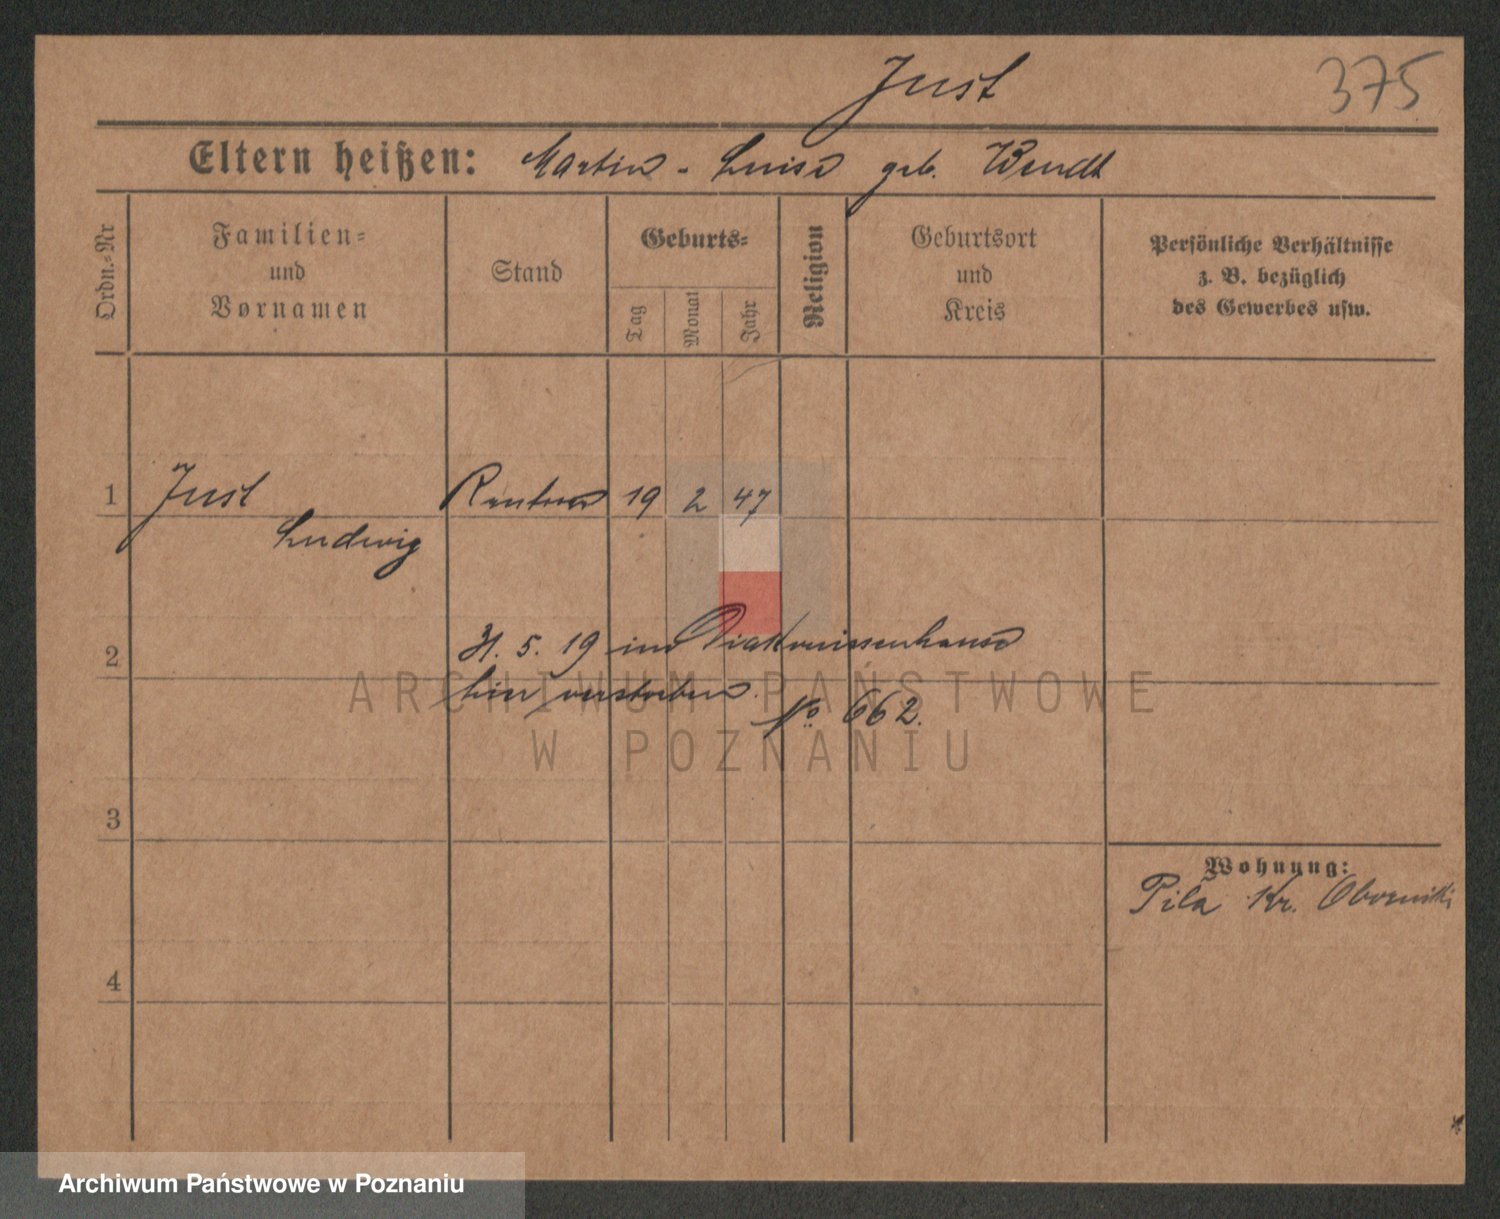 Just
375
Eltern heißen: Martin - Luise geb. Wendt
Ordn.-Nr
Familien- und Vornamen
Stand
Geburts-
Tag
Monat
Jahr
Religion
Geburtsort und Kreis
Persönliche Verhältnisse
z. B. bezüglich
des Gewerbes usw.
1 Just Rentner 19 2 47
Ludwig
2 31. 5. 19 im Diakonissenhause
hier verstorben.
No 662.
ARCHIWUM PAŃSTWOWE
W POZNANIU
3
Wohnung:
Pila Kr. Obornik
4
Archiwum Państwowe w Poznaniu